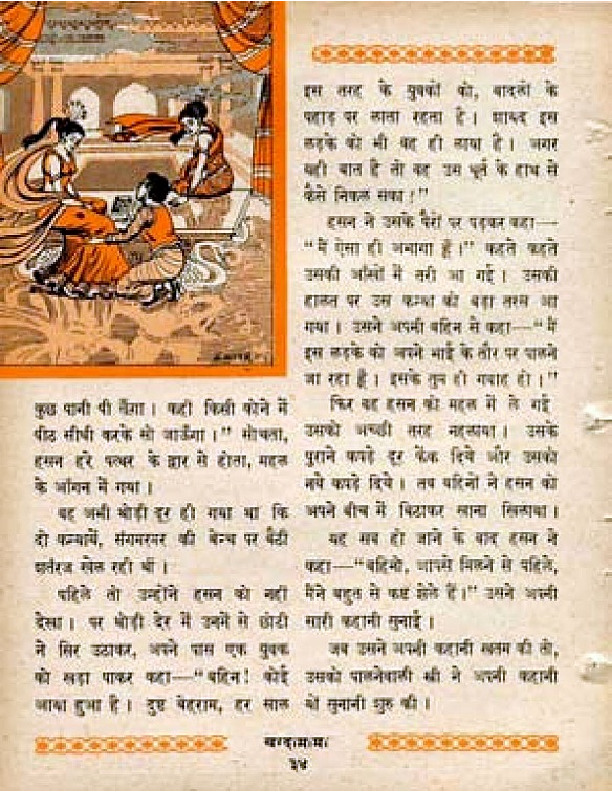 कुछ पानी पी लूँगा । कहीं किसी कोने में
पीठ सीधी करके सो जाऊँगा ।" सोचता,
हसन हरे पत्थर के द्वार से होता, महल
के आँगन में गया ।
वह अभी थोड़ी दूर ही गया था कि
दो कन्यायें, संगमरमर की बेन्च पर बैठी
शतरंज खेल रही थीं ।
पहिले तो उन्होंने हसन को नहीं
देखा । पर थोड़ी देर में उनमें से छोटी
ने सिर उठाकर, अपने पास एक युवक
को खड़ा पाकर कहा—"बहिन! कोई
आया हुआ है । दुष्ट बेहराम, हर साल
इस तरह के युवकों को, बादलों के
पहाड़ पर लाता रहता है । शायद इस
लड़के को भी वह ही लाया है । अगर
यही बात है तो वह उस धूर्त के हाथ से
कैसे निकल सका !"
हसन ने उसके पैरों पर पड़कर कहा—
"मैं ऐसा ही अभागा हूँ ।" कहते कहते
उसकी आँखों में तरी आ गई । उसकी
हालत पर उस कन्या को बड़ा तरस आ
गया । उसने अपनी बहिन से कहा—"मैं
इस लड़के को अपने भाई के तौर पर पालने
जा रहा हूँ । इसके तुम ही गवाह हो ।"
फिर वह हसन को महल में ले गई
उसको अच्छी तरह नहलाया । उसके
पुराने कपड़े दूर फेंक दिये और उसको
नये कपड़े दिये । तब बहिनों ने हसन को
अपने बीच में बिठाकर खाना खिलाया ।
यह सब हो जाने के बाद हसन ने
कहा—"बहिनो, आपसे मिलने से पहिले,
मैंने बहुत से कष्ट झेले हैं ।" उसने अपनी
सारी कहानी सुनाई ।
जब उसने अपनी कहानी खतम की तो,
उसको पालनेवाली स्त्री ने अपनी कहानी
यों सुनानी शुरु की ।
चन्दामामा
३४